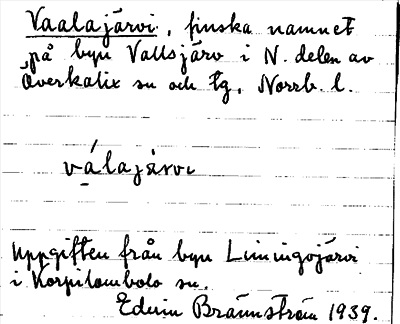 Vaalajärvi, finska namnet
på byn Vallsjärv i N. delen av
Överkalix sn och tg, Norrb. l.
válajärvi
Uppgiften från byn Liningojärvi
i Korpilombolo sn.
Edvin Brännström 1939.